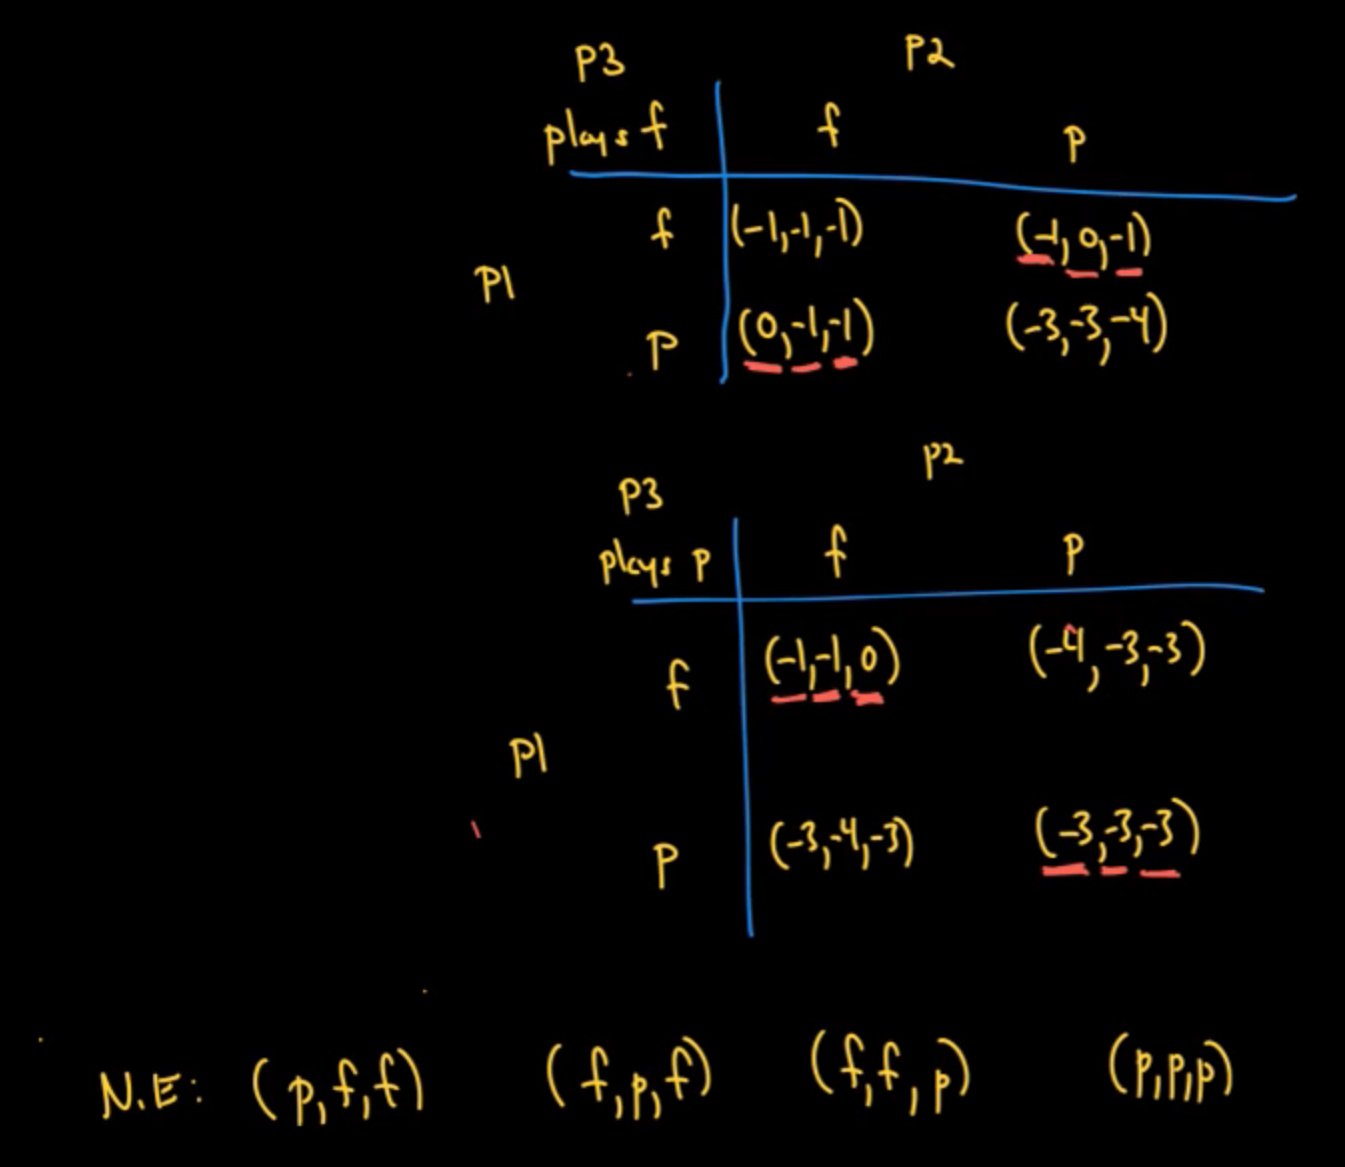 P3 P2
plays f f p
f (-1,-1,-1) (-1,0,-1)
P1
p (0,-1,-1) (-3,-3,-4)
P2
P3
plays p f p
f (-1,-1,0) (-4,-3,-3)
P1
p (-3,-4,-3) (-3,-3,-3)
N.E: (p,f,f) (f,p,f) (f,f,p) (p,p,p)